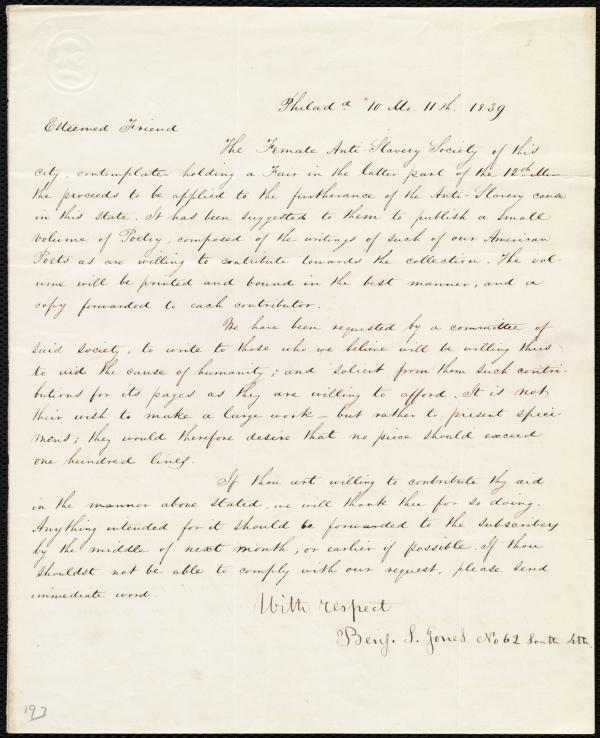 Philad.a 10 Mo. 11th. 1839
Esteemed Friend
The Female Anti-Slavery Society of this
city, contemplate holding a Fair in the latter part of the 12th Mo—
the proceeds to be applied to the furtherance of the Anti-Slavery cause
in this state. It has been suggested to them to publish a small
volume of Poetry, composed of the writings of such of our American
Poets as are willing to contribute towards the collection. The vol-
ume will be printed and bound in the best manner, and a
copy forwarded to each contributor.
We have been requested by a committee of
said society, to write to those who we believe will be willing thus
to aid the cause of humanity; and solicit from them such contri-
butions for its pages as they are willing to afford. It is not
their wish to make a large work – but rather to present speci-
mens; they would therefore desire that no piece should exceed
one hundred lines.
If thou art willing to contribute thy aid
in the manner above stated, we will thank thee for so doing.
Anything intended for it should be forwarded to the subscribers
by the middle of next month, or earlier if possible. If thou
shouldst not be able to comply with our request, please send
immediate word.
With respect
Benj. S. Jones No 62 South 4th.
193